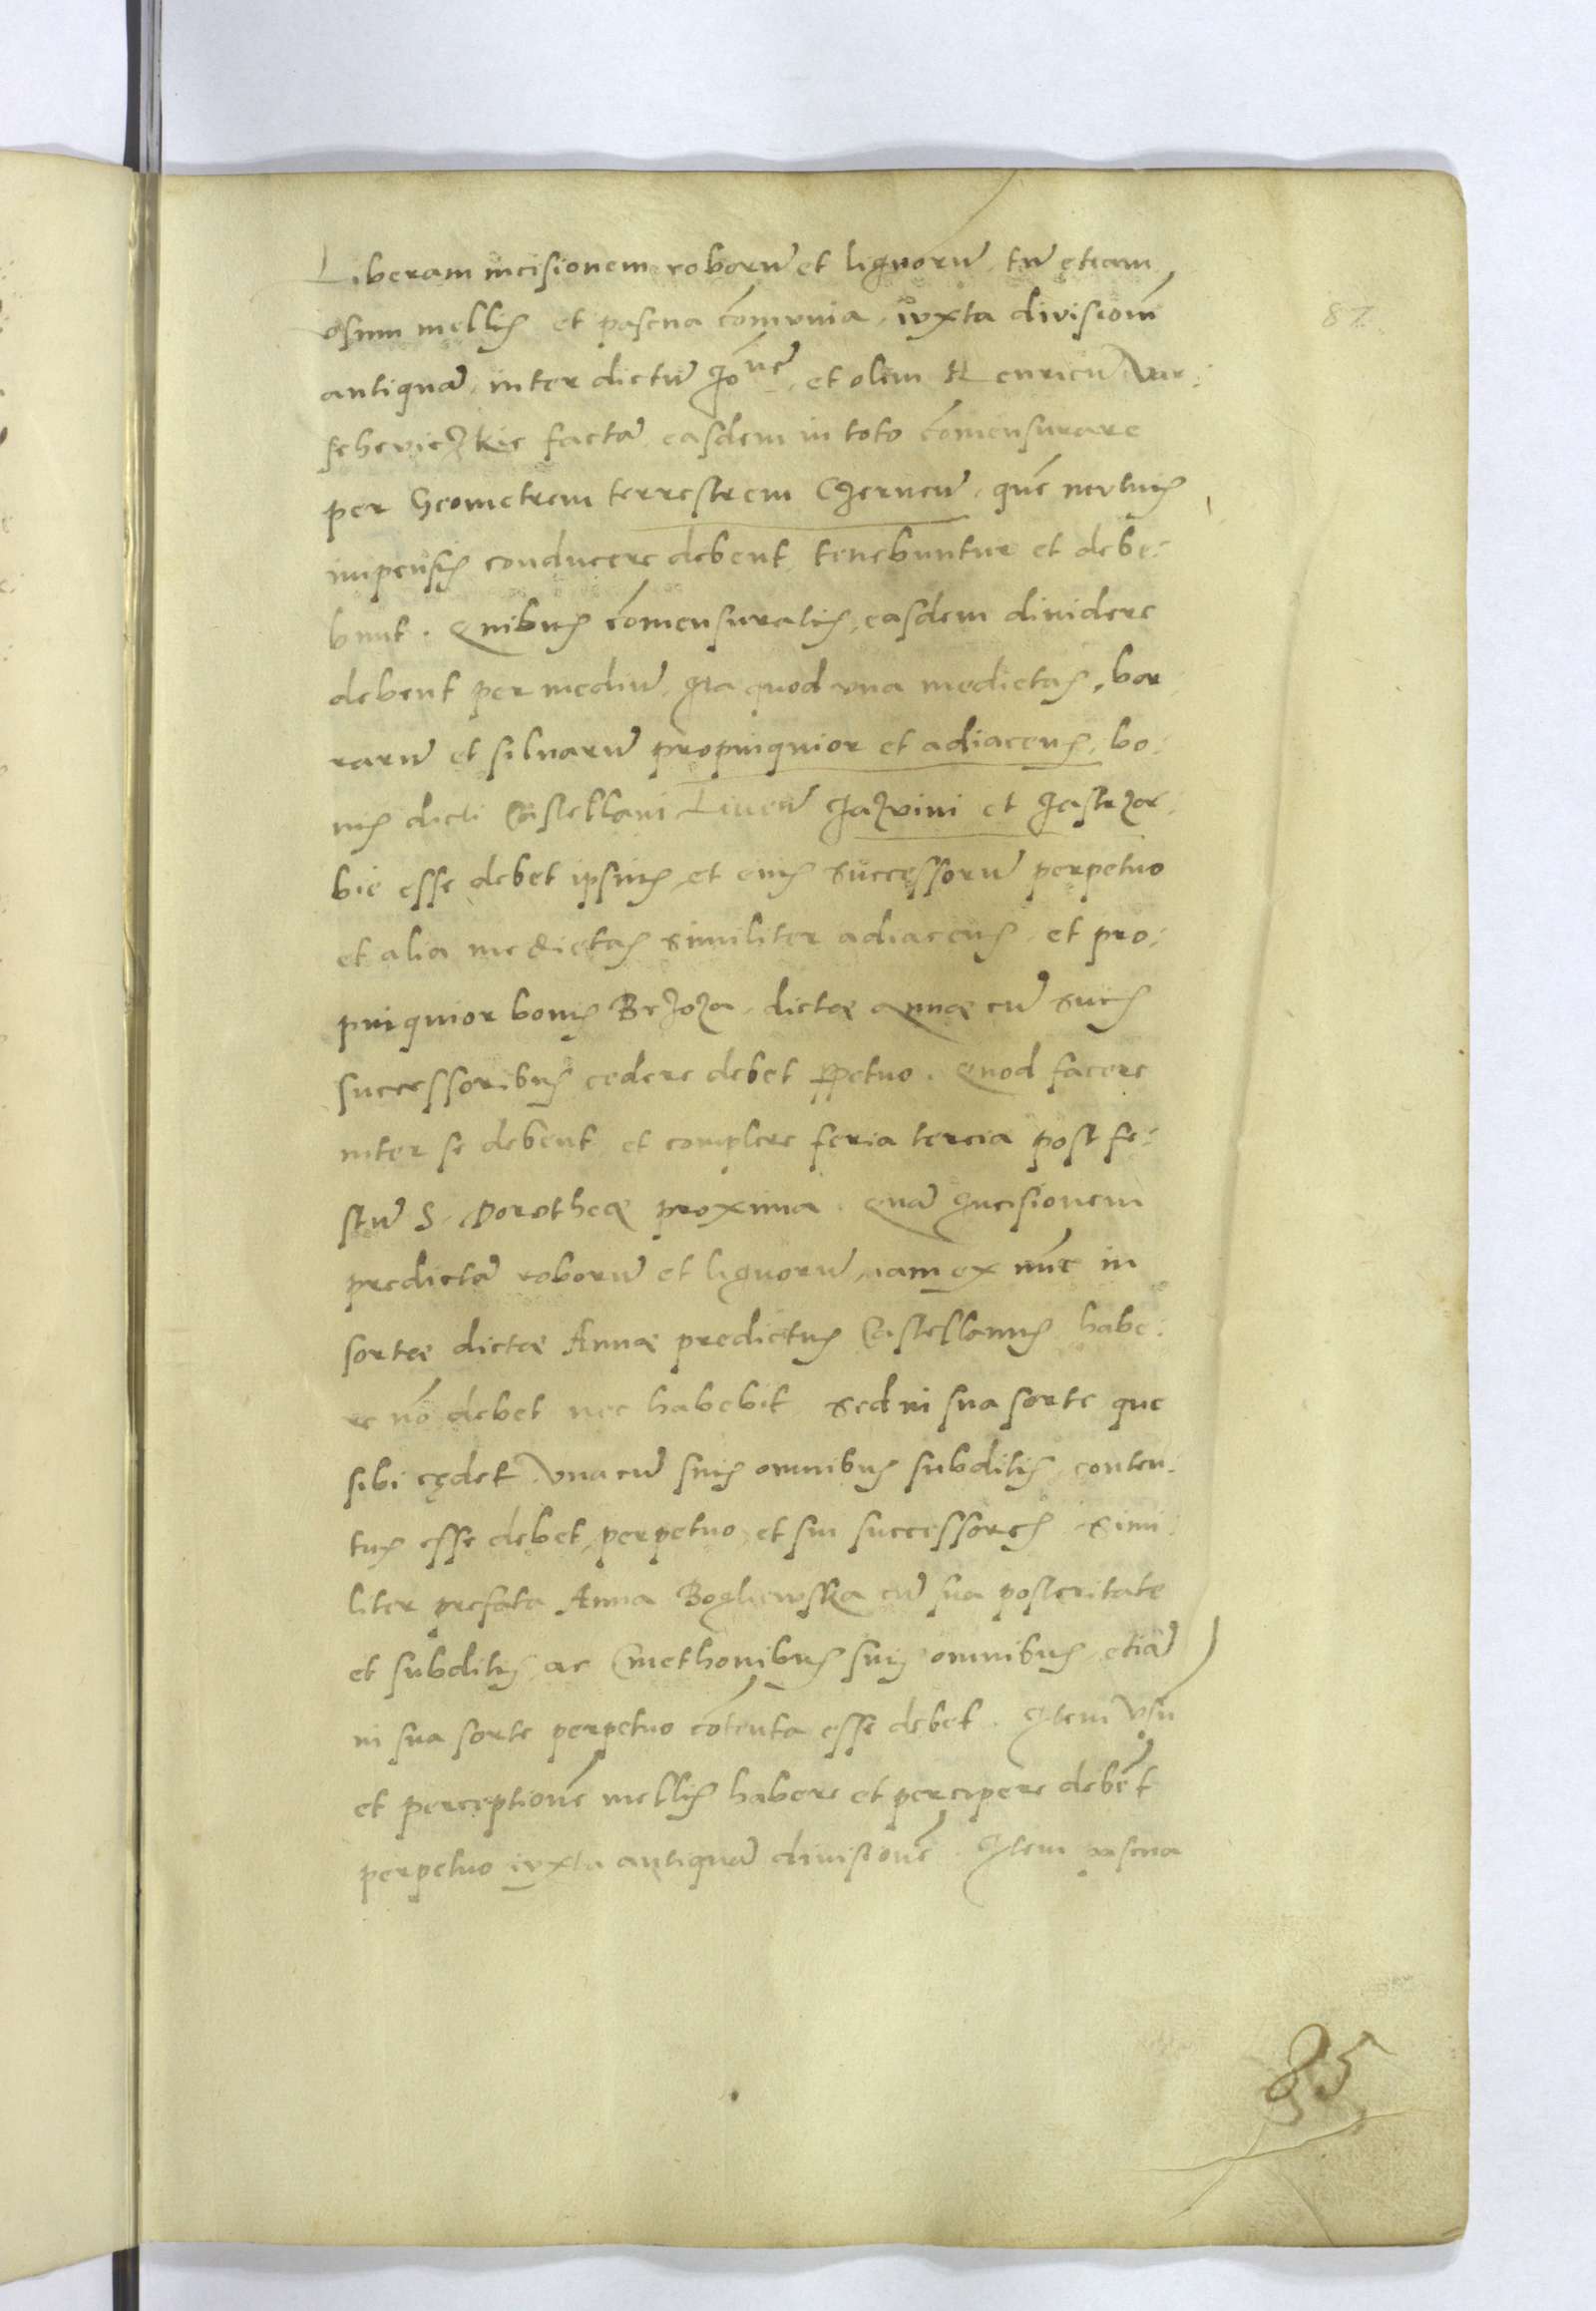 Liberam incisionem roborũ et lignorũ, tũ etiam
usum mellis et pascua cõmunia, iuxta divisionẽ
antiquã, inter dictũ Joñẽ, et olim Henricũ Var:
schevickie factã, easdem in toto cõmensurare
per Geometrem terrestrem Cʒernen̄, quẽ
impensis conducere debent, tenebuntur et debe:
bunt. Quibus cõmensuratis, easdem dividere
debent per mediũ. Ita quod vna medietas, bor
rarũ et silvarũ propinquior et adiacens, bo:
nis dicti Castellani Liven̄ Jaʒvini et Jastrʒar:
bie esse debet ipsius, et eius successorũ perpetuo
et alia medietas similiter adiacens, et pro:
pinquior bonis Brʒoʒa, dictæ Annæ cũ suis
successoribus cedere debet ꝑpetuo. Quod facere
inter se debent, et complere feria tercia post fe:
stũ S. Dorotheæ proxima. Quã Incisionem
predictã roborũ et lignorũ, iam ex nũc in
sortæ dictæ Annæ predictus Castellanus habe:
re nõ debet nec habebit sed in sua sorte que
sibi cędet, vna cũ suis omnibus subditis, conten:
tus esse debet, perpetuo, et sui successores. Simi:
liter prefata Anna Boglewska cũ sua posteritate
et subditis ac Cmethonibus suis omnibus, etiã
in sua sorte perpetuo cõtenta esse debet. Item Vsũ
et perceptionẽ mellis habere et percipere debẽt
perpetuo iuxta antiquã divisionẽ. Item pascua
87
85